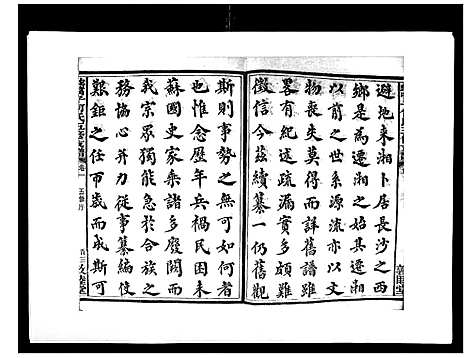 避地來湘卜居長沙之西
鄉是為遷湘之始其遷湘
以前之世系源流亦以文
物喪失莫得而詳舊譜雖
畧有紀述疏漏實多頗難
徵信今茲續纂一仍舊觀
斯則事勢之無可如何者
也惟念歷年兵禍民困未
蘇國史家乘諸多廢闕而
我宗眾獨能急於合族之
務協心并力從事纂編使
艱鉅之任以成而斯可